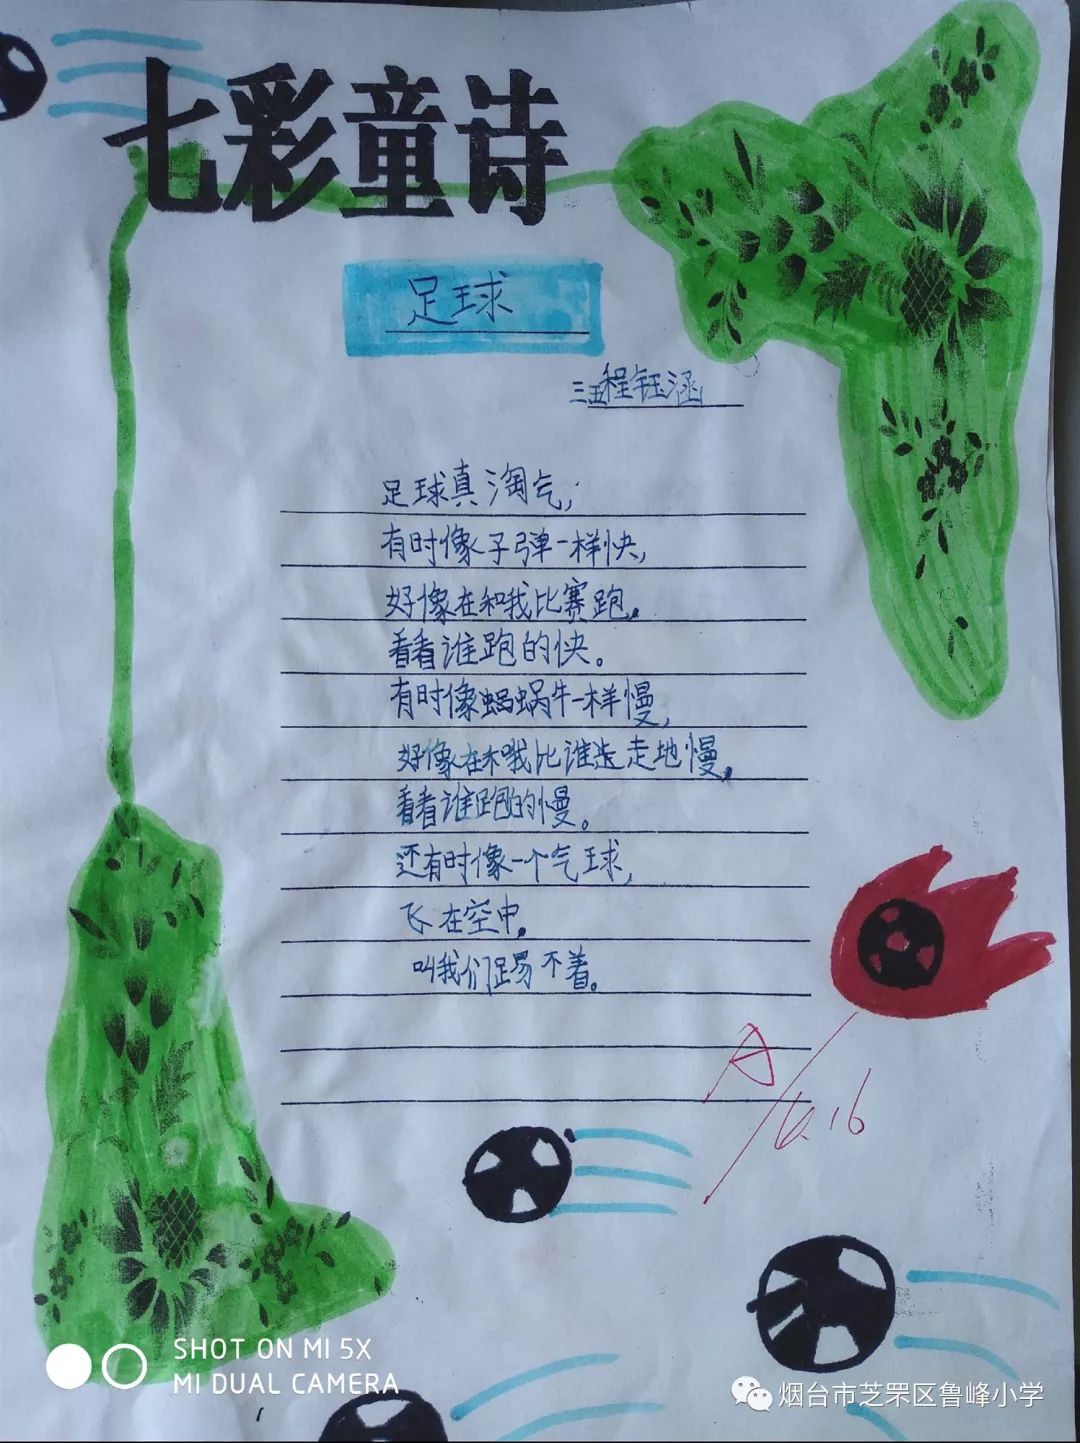 七彩童诗
足球
三五程钰涵
足球真淘气，
有时像子弹一样快，
好像在和我比赛跑，
看看谁跑的快。
有时像蜗蜗牛一样慢，
好像在和我比谁走地慢，
看看谁跑的慢。
还有时像一个气球，
飞在空中，
叫我们踢不着。
A
6.16
SHOT ON MI 5X
MI DUAL CAMERA
烟台市芝罘区鲁峰小学